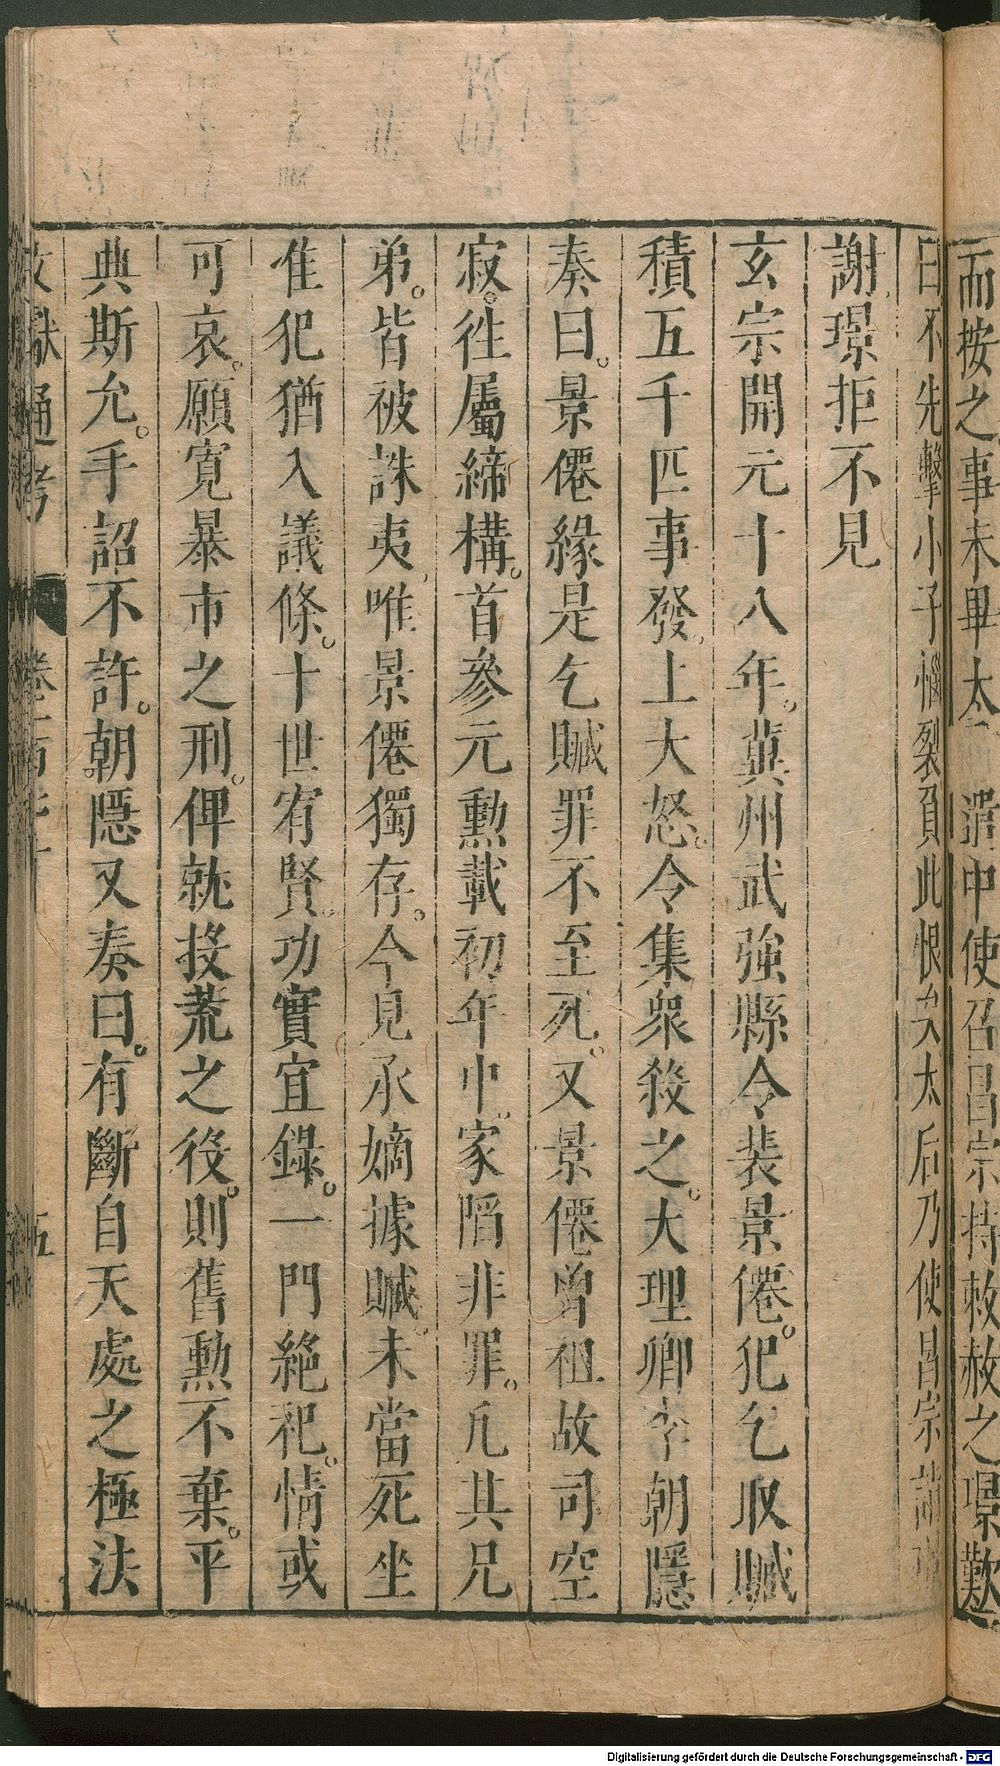 而按之事未畢太 遣中使召昌宗持敕赦之璟歎
曰不先擊小子惱裂負此恨矣太后乃使昌宗詣璟
謝璟拒不見
玄宗開元十八年冀州武強縣令裴景僊犯乞取贓
積五千匹事發上大怒令集衆殺之大理卿李朝隱
奏曰景僊緣是乞贓罪不至死又景僊曾祖故司空
寂往屬締構首參元勳載初年中家陷非罪凡其兄
弟皆被誅夷唯景僊獨存今見承嫡據贓未當死坐
准犯猶入議條十世宥賢功實宜錄一門絕祀情或
可哀願寬暴市之刑俾就投荒之役則舊勳不棄平
典斯允手詔不許朝隱又奏曰有斷自天處之極法
文獻通考 卷一百七十 五
Digitalisierung gefördert durch die Deutsche Forschungsgemeinschaft - DFG